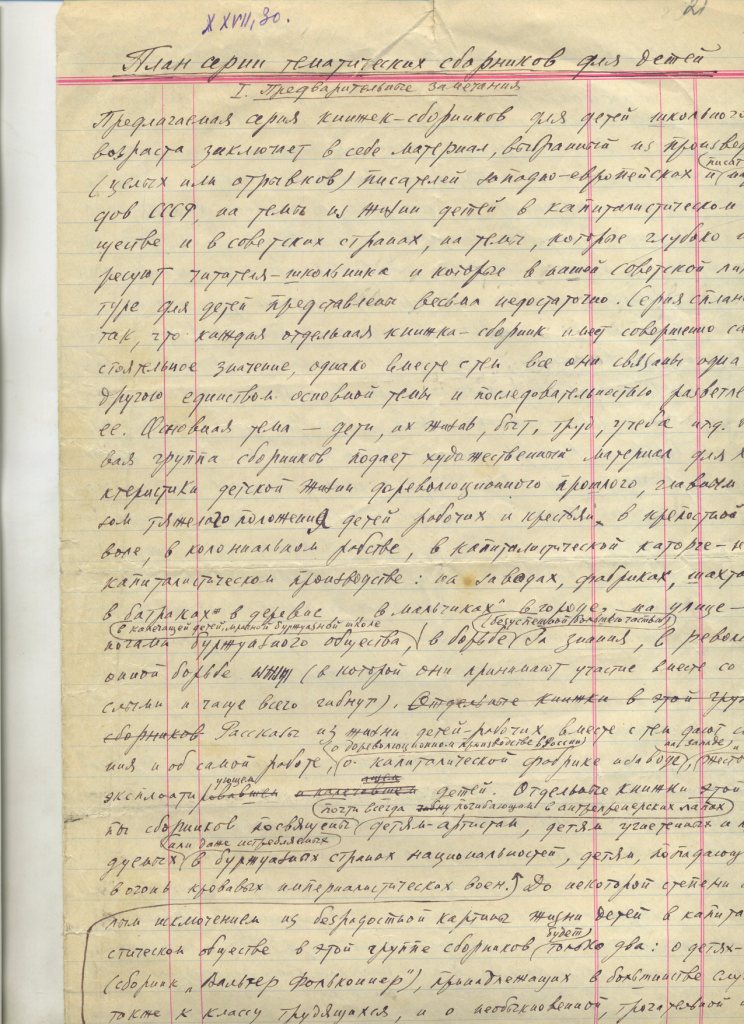 XXVII, 30.
21
План серии тематических сборников для детей
I. Предварительные замечания
Предлагаемая серия книжек-сборников для детей школьного
возраста заключает в себе материал, выбранный из произвед
(целых или отрывков) писателей западно-европейских и
писат
дов СССР, на темы из жизни детей в капиталистическом
ществе и в советских странах, на темы, которые глубоко
ресуют читателя-школьника и которые в нашей советской
туре для детей представлены весьма недостаточно. Серия
так, что каждая отдельная книжка-сборник имеет совершенно са
стоятельное значение, однако вместе с тем все они связаны одна
другою единством основной темы и последовательностью
ее. Основная тема — дети, их жизнь, быт, труд, учеба итд.
вая группа сборников подает художественный материал для
ктеристики детской жизни дореволюционного прошлого, главным
зом тяжелого положения детей рабочих и крестьян в крепостной
воле, в колониальном рабстве, в капиталистической каторге-
капиталистическом производстве: на заводах, фабриках, шахт
в батраках в деревне в „мальчиках" в городе, на улице —
в калечащей детей, буржуазной школе
(безуспешной большей частью)
ногами буржуазного общества, в борьбе за знания, в револ
онной борьбе (в которой они принимают участие вместе со
слыми и чаще всего гибнут). Отдельные книжки в этой гру
сборников Рассказы из жизни детей-рабочих вместе с тем дают
ния и об самой работе,
о дореволюционном производстве в России
о капиталической фабрике и заводе
на западе
жесто
эксплоати
ующем
детей. Отдельные книжки этой
почти всегда погибающим в антрепренерских лапах
пы сборников посвящены детям-артистам, детям угнетенных и
или даже истребляемых
в буржуазных странах национальностей, детям, попадающ
в огонь кровавых империалистических воен. До некоторой степени
ным исключением из безрадостной картины жизни детей в капита
стическом обществе в этой группе сборников
будет
только два: о детях-
(сборник „Вальтер
принадлежащих в большинстве слу
также к классу трудящихся, и о необыкновенной, трогательной